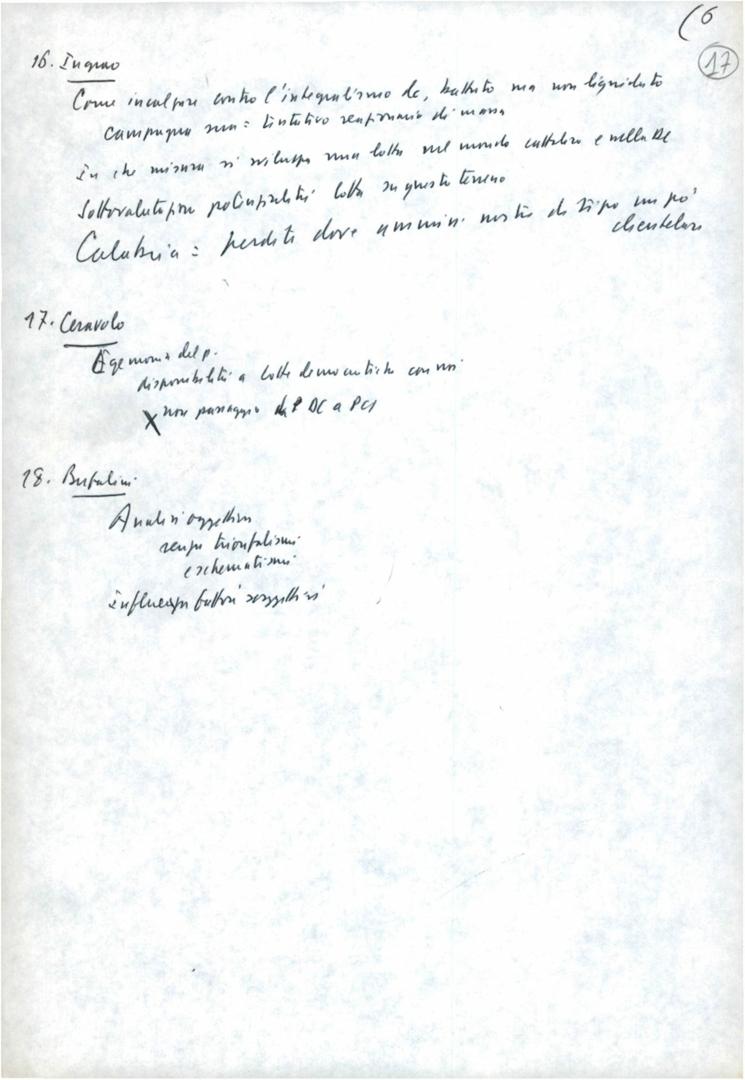 (6
17
16. Ingrao
Come incalzare contro l'integralismo dc, battuto ma non liquidato
campagna : tentativo reazionario di massa
In che misura si sviluppa una lotta nel mondo cattolico e nella DC
Sottovalutazione potenzialità lotta su questo terreno
Calabria = perdite dove ammin. nostre di tipo un pò
clientelare
17. Ceravolo
Egemonia del p.
disponibilità a lotte democratiche con noi
X non passaggio da DC a PCI
18. Bufalini
Analisi oggettiva
senza trionfalismi
e schematismi
influenza fattori soggettivi